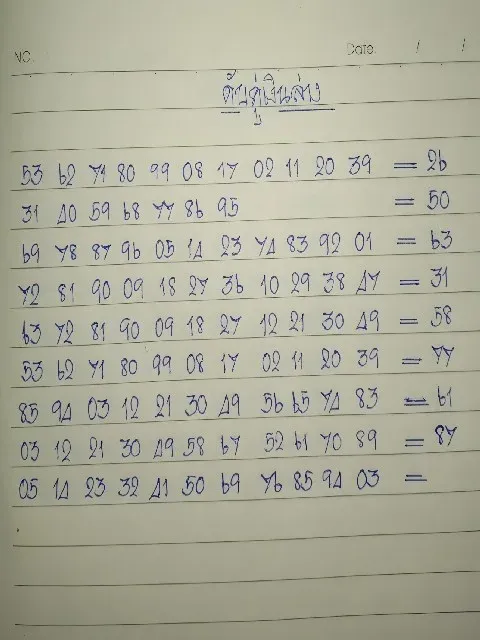 NO.
Date / /
ดับคู่เงินล่าง
53 62 71 80 99 08 17 02 11 20 39 = 26
31 40 59 68 77 86 95 = 50
69 78 87 96 05 14 23 74 83 92 01 = 63
72 81 90 09 18 27 36 10 29 38 47 = 31
63 72 81 90 09 18 27 12 21 30 49 = 58
53 62 71 80 99 08 17 02 11 20 39 = 77
85 94 03 12 21 30 49 56 65 74 83 = 61
03 12 21 30 49 58 67 52 61 70 89 = 87
05 14 23 32 41 50 69 76 85 94 03 =